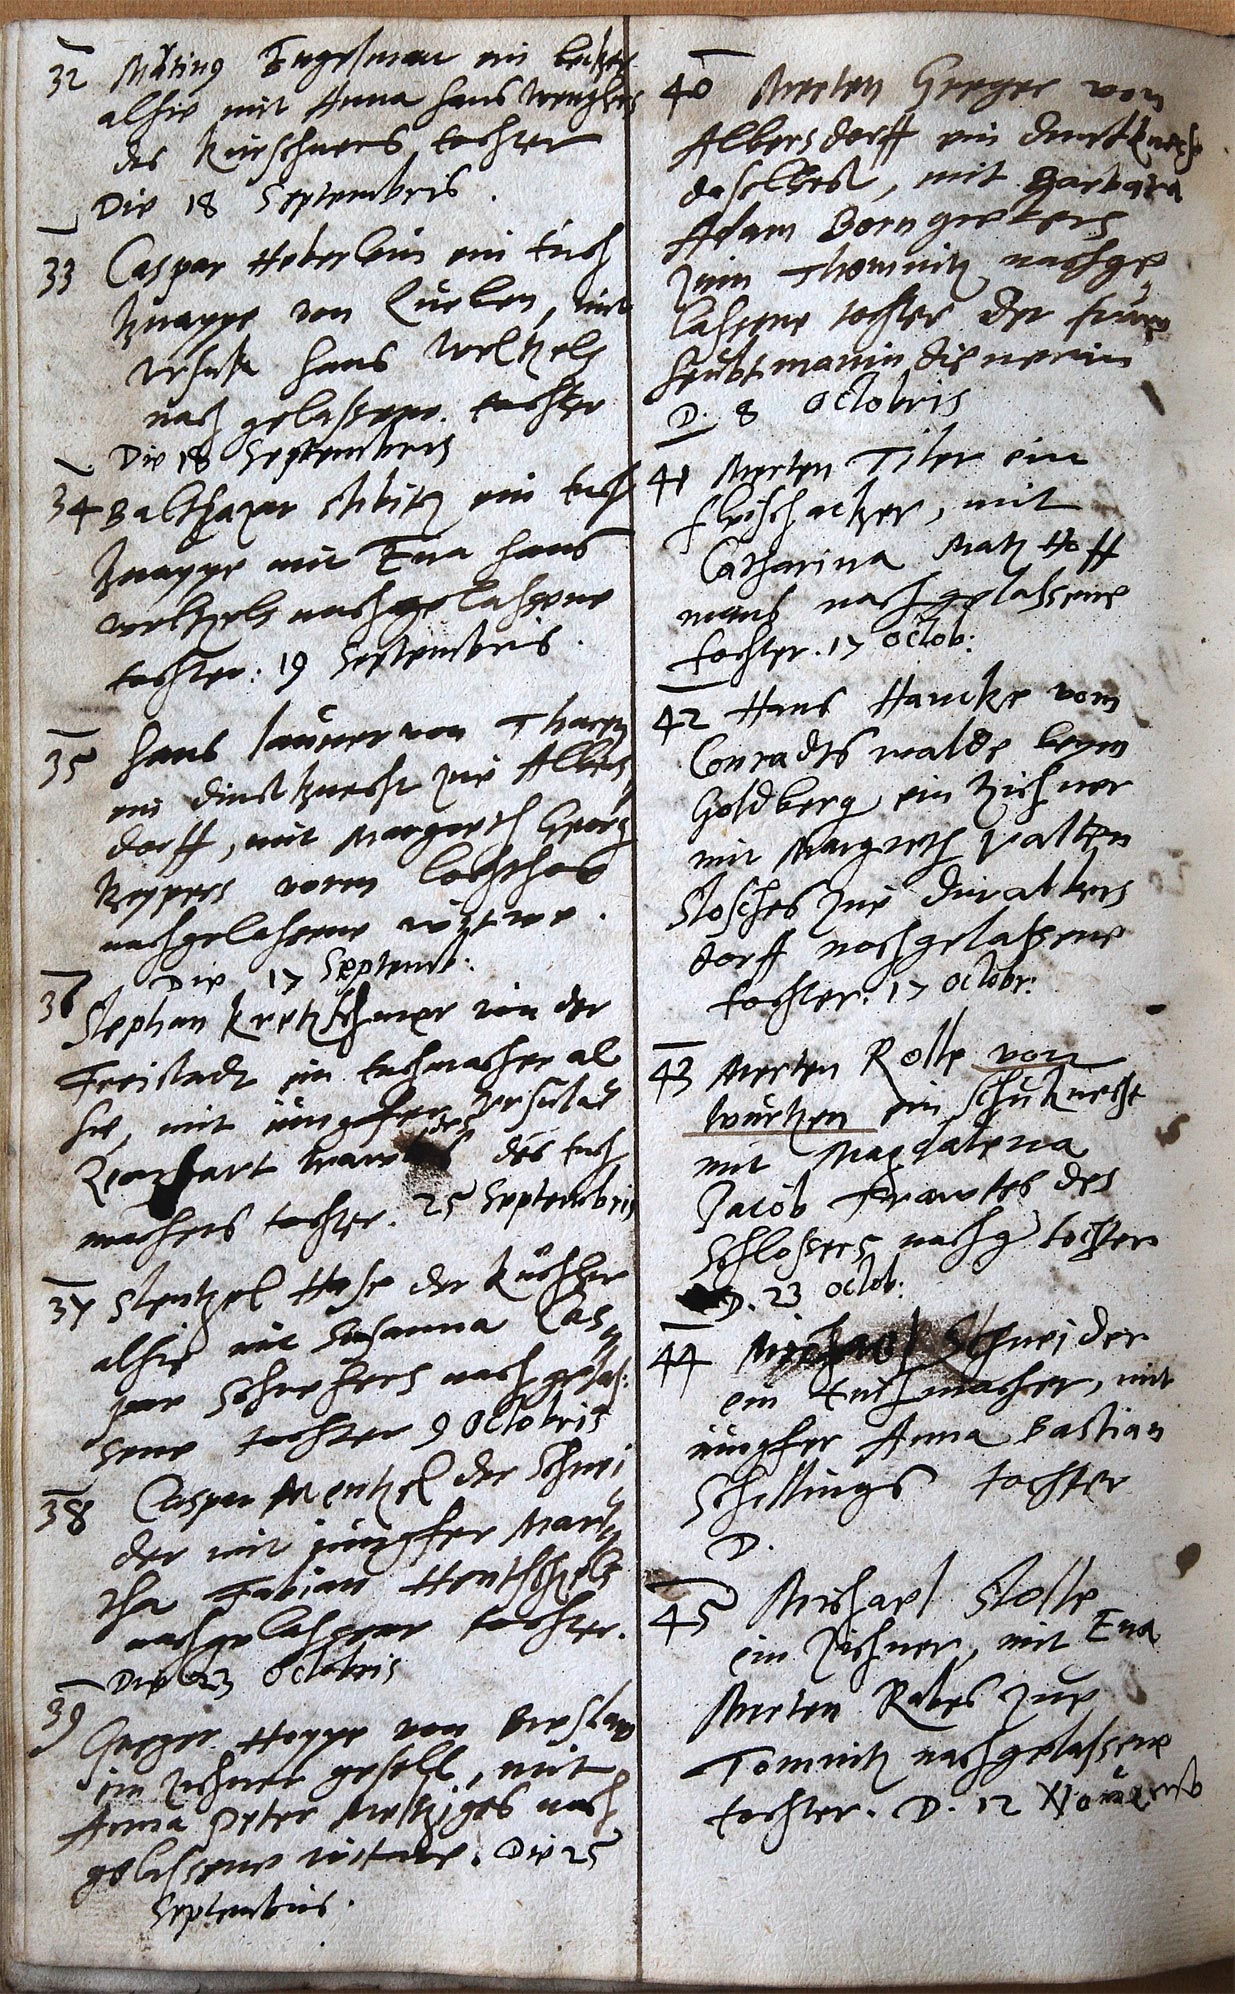 32 Märting Engelman ein becker
alhie mit Anna Hans Wenzkes
des Kürschners tochter
Die 18 Septembris.
33 Caspar Heberlein ein tuch
knappe von Lüeben, mit
Ursula Hans Weltzels
nach gelassene tochter
Die 18 Septembris
34 Balthazar ein tuch
knappe mit Eva Hans
Weltzels nachgelassene
tochter. 19 Septembris.
35 Hans von
ein dinstknecht zue Albers
dorff, mit Margareth
vorm
nachgelassene wittwe.
Die 17 Septemb:
36
Stephan Kretzschmer von der
Freistadt ein tuchmacher al
hie, mit jungfer Ursula des
des tuch
machers tochter. 25 Septembris
37 Stentzel Hase der Küchler
alhie mit Susanna Cas„
par nach gelas:
sene tochter 9 Octobris
38 Caspar Mentzel der Schnei
der mit jungfer Mar„
tha Fabian Hentschels
nachgelassene tochter.
Die 23 Octobris
39
Greger Hoppe von Breslaw
ein zichner gesell, mit
Anna Peter nach
gelassene wittwe. Die 25
Septembris.
40 Merten Greger von
Albersdorff ein dinstknecht
daselbest, mit Barbara
Adam Borngrebers
zum Thomnitz nachge„
lassene tochter der frawen
heubtmannin dienerin
D. 8 Octobris
41 Merten Tiler ein
fleischacker, mit
Catharina Matz Hoff
mans nachgelassene
tochter. 17 Octob:
42 Hans Hancke vom
Conradtswalde beym
Goldberg ein zichner
mit Margreth Valten
Stosches zue
dorff nachgelassene
tochter. 17 Octobr:
43 Merten Rolle von
Wurtzen ein schuknecht
mit Magdalena
Jacob des
Schlossers nachg tochter
D. 23 Octob:
44 Michael Schneider
ein tuchmacher, mit
jungfer Anna Bastian
Schillings tochter
D.
45 Michael Stolle
ein zichner, mit Eva
Merten Rabes zue
Tomnitz nachgelassene
tochter. D. 12 Novemb